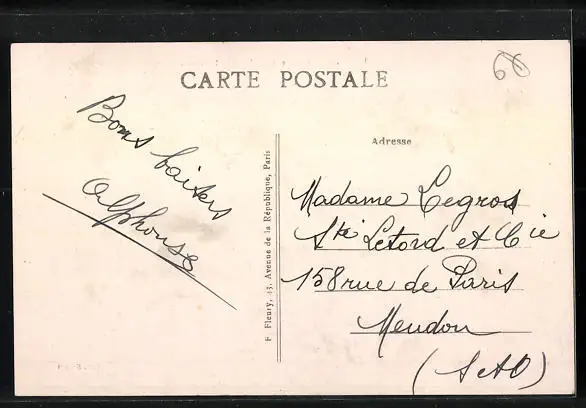 60
CARTE POSTALE
Bons baisers
Alphonse
F. Fleury, 43, Avenue de la République, Paris
Adresse
Madame Legros
Sté Letord et Cie
158 rue de Paris
Meudon
(S et O)